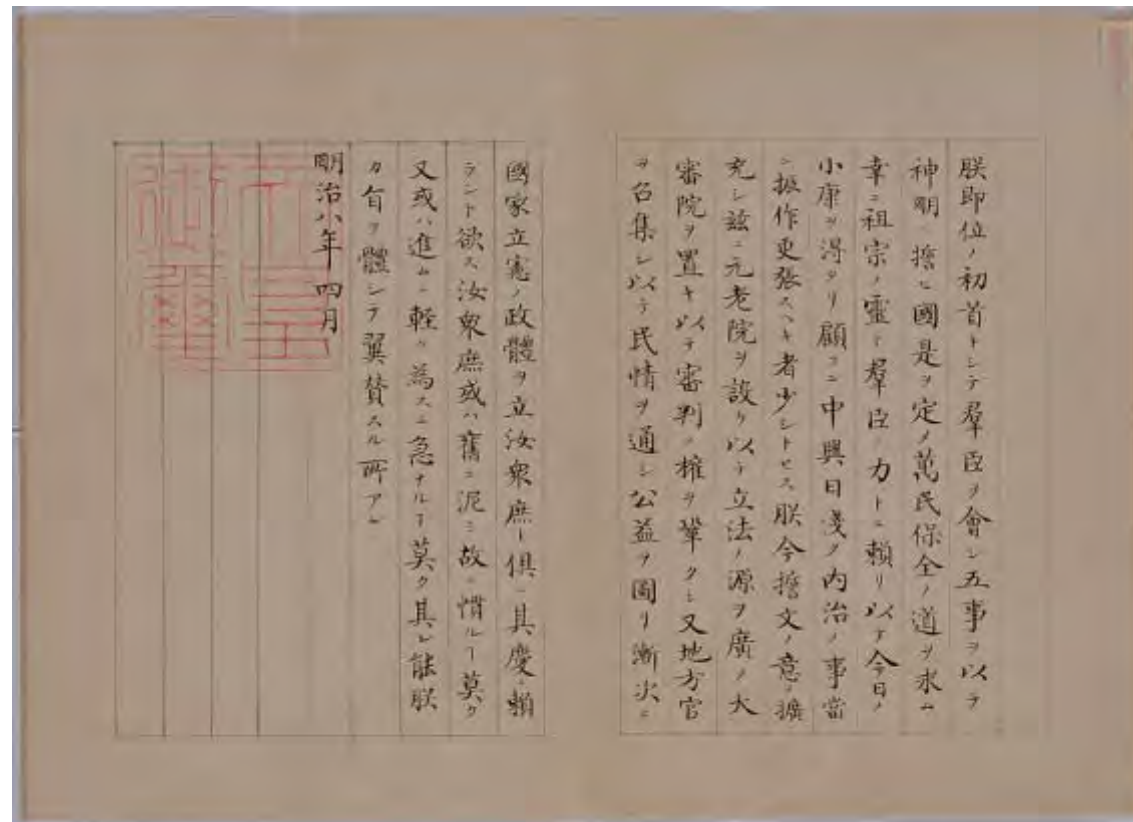 朕即位ノ初首トシテ羣臣ヲ會シ五事ヲ以テ
神明ニ誓ヒ國是ヲ定メ萬民保全ノ道ヲ求ム
幸ニ祖宗ノ靈ト羣臣ノ力トニ頼リ以テ今日ノ
小康ヲ得タリ顧ニ中興日淺ク内治ノ事當
ニ振作更張スヘキ者少シトセス朕今誓文ノ意ヲ擴
充シ茲ニ元老院ヲ設ケ以テ立法ノ源ヲ廣メ大
審院ヲ置キ以テ審判ノ權ヲ鞏クシ又地方官
ヲ召集シ以テ民情ヲ通シ公益ヲ圖リ漸次ニ
國家立憲ノ政體ヲ立汝衆庶ト俱ニ其慶ニ頼
ラント欲ス汝衆庶或ハ舊ニ泥ミ故ニ慣ルヿ莫ク
又或ハ進ムニ輕ク為スニ急ナルヿ莫ク其レ能朕
カ旨ヲ體シテ翼賛スル所アレ
明治八年四月
天皇
御璽